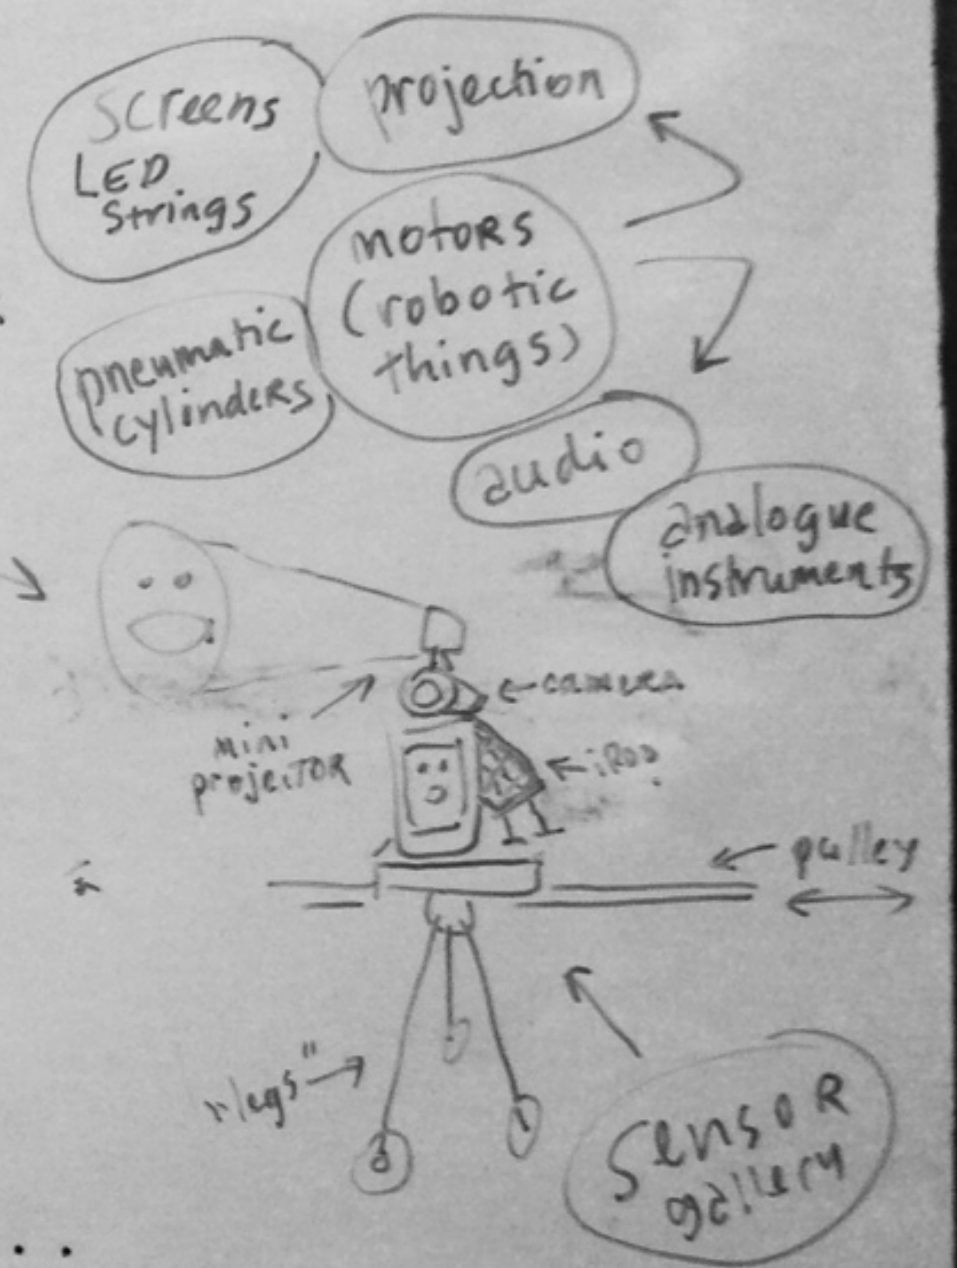 screens
LED
strings
projection
motors
(robotic
things)
pneumatic
cylinders
audio
analogue
instruments
camera
mini
projector
pulley
"legs"
sensor
gallery